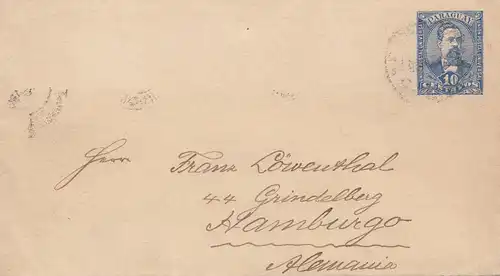 PARAGUAY
10
Herrn
Franz Löwenthal
44 Grindelberg
Hamburgo
Alemania